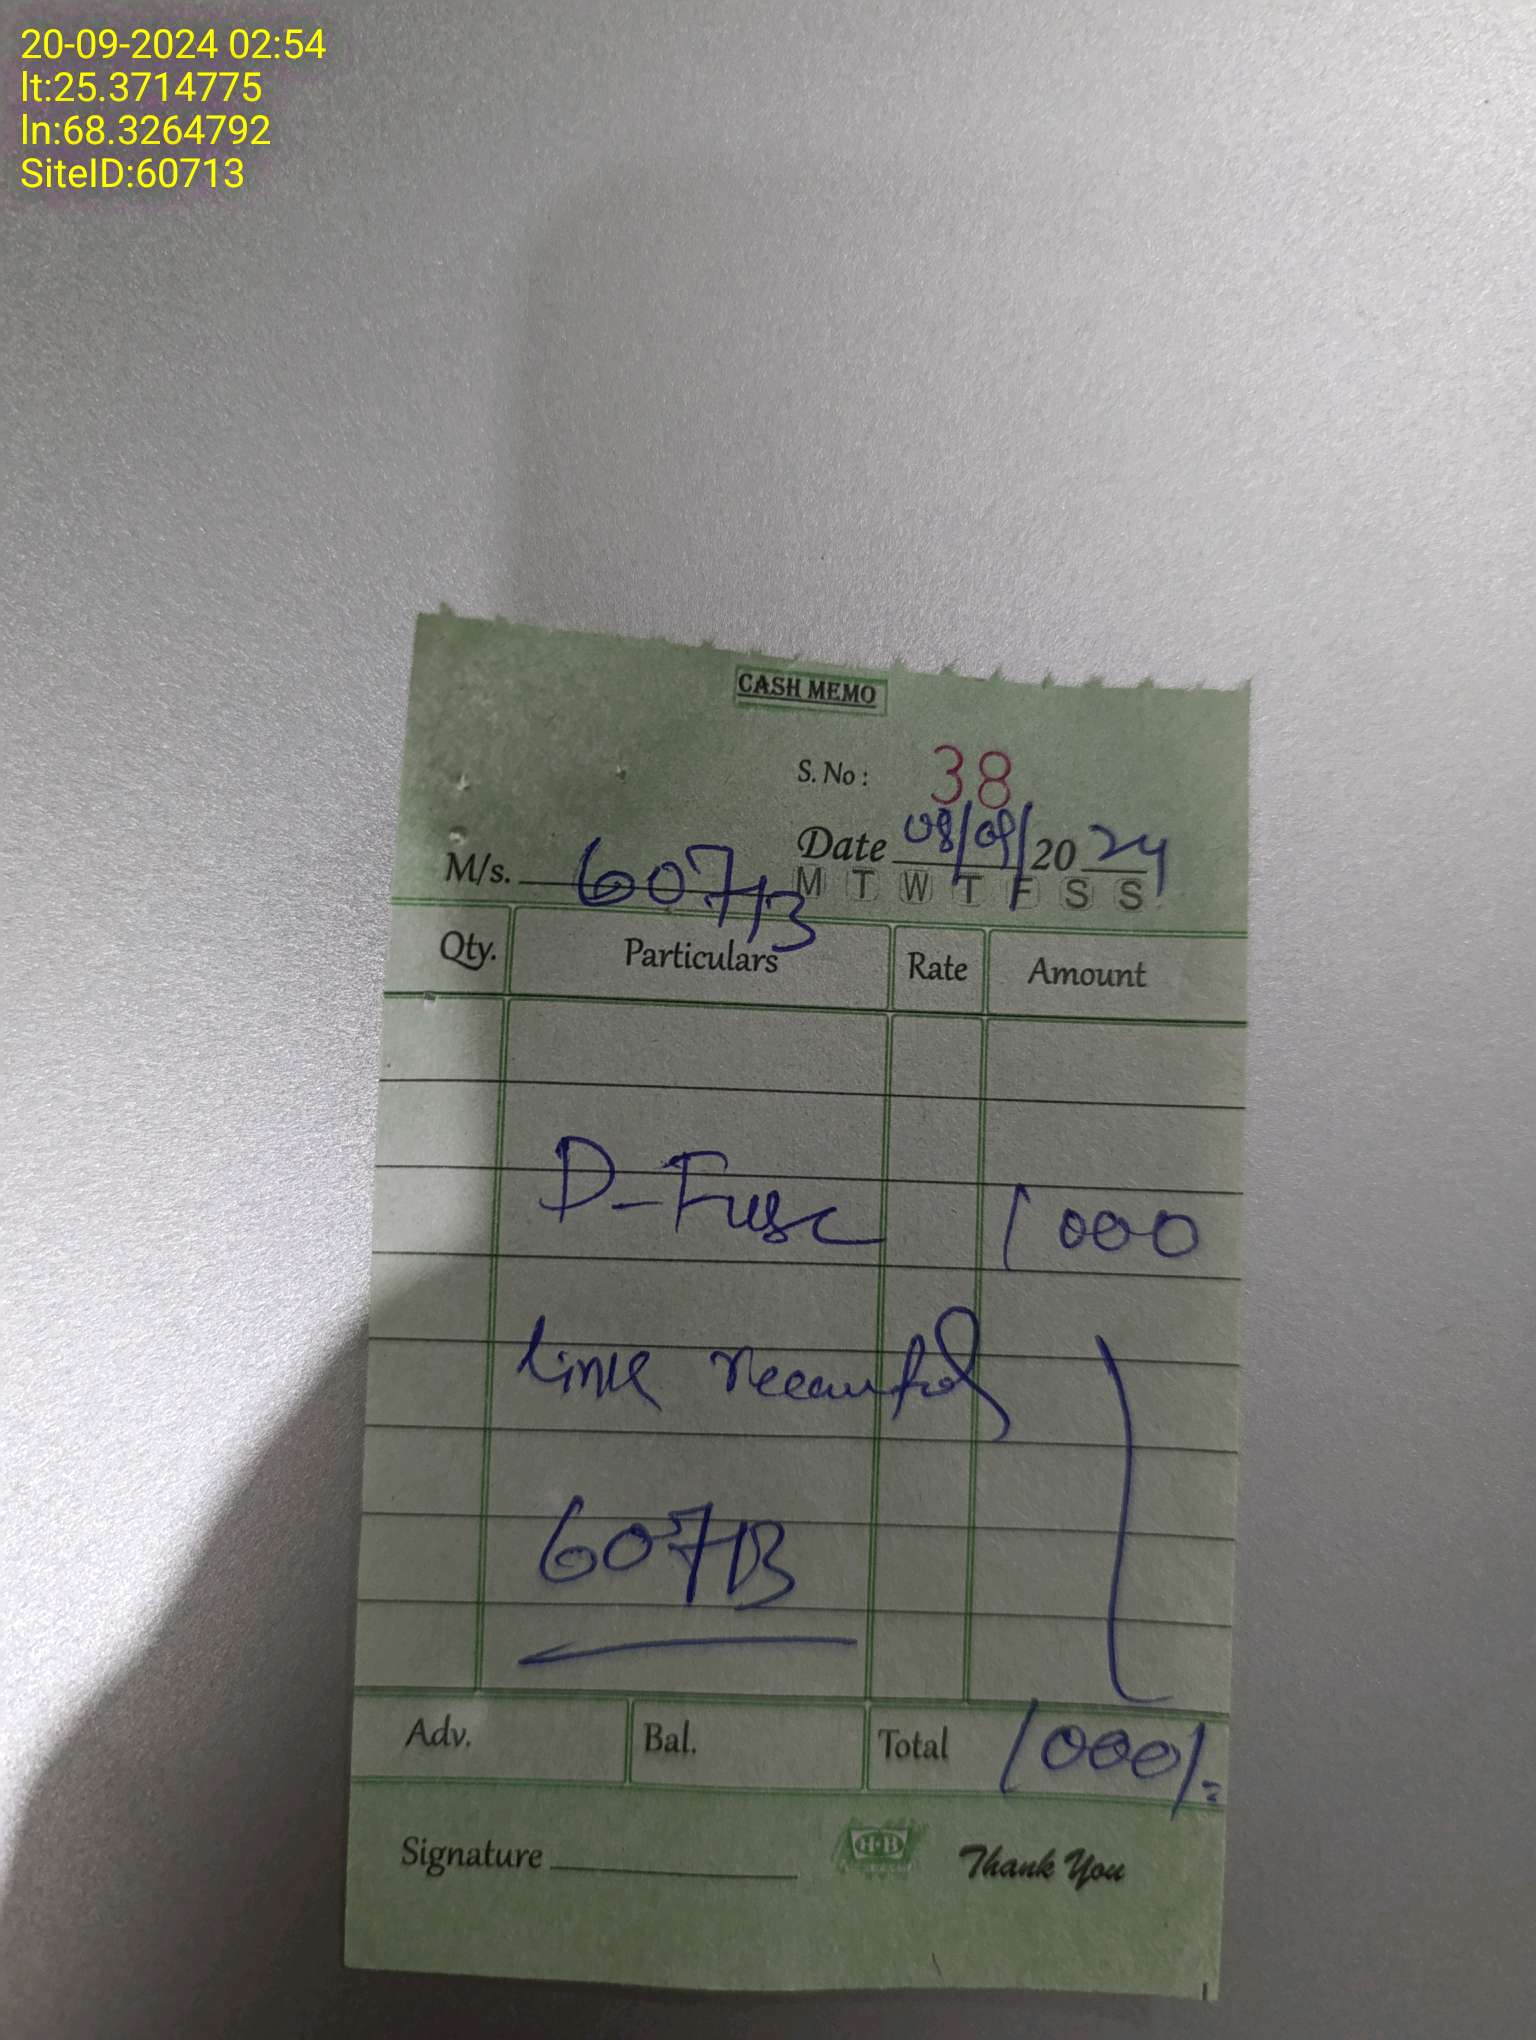 20-09-2024 02:54
lt:25.3714775
ln:68.3264792
SiteID:60713
CASH MEMO
S. No : 38
Date 08/09/2024
M/s. 60713
M T W T F S S
Qty. Particulars Rate Amount
D-Fuse 1000
link
60713
Adv. Bal. Total 1000/=
Signature
H·B
Thank You